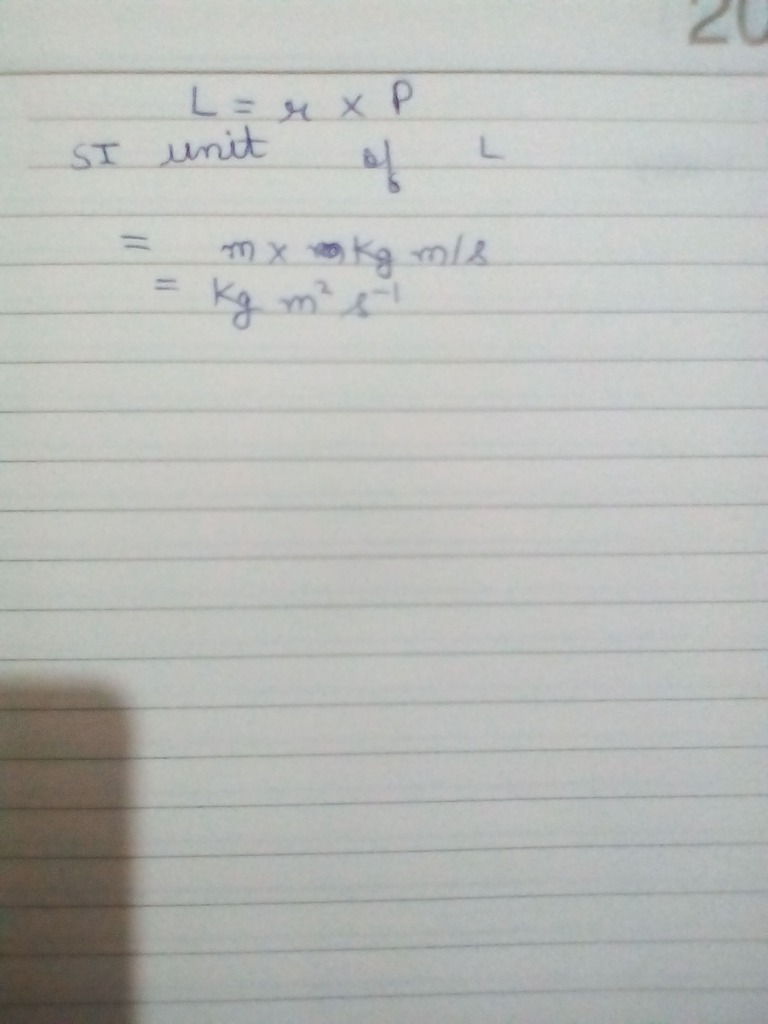 20
L = r × P
SI unit of L
= m × kg m/s
= kg m² s⁻¹